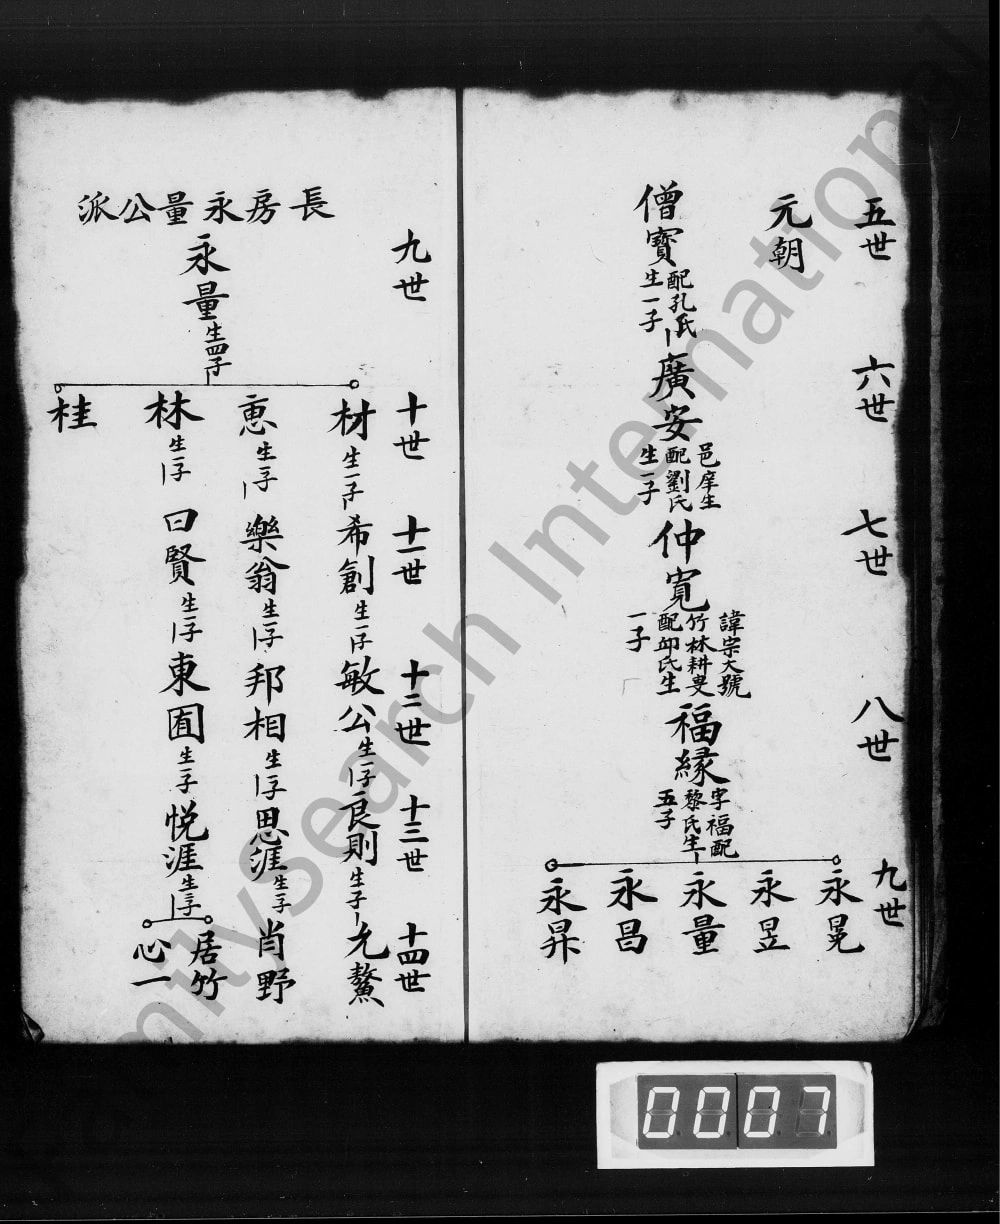 五世
六世
七世
八世
九世
元朝
僧寶
配孔氏
生一子
廣安
邑庠生
配劉氏
生一子
仲寬
諱宗大號
竹林耕叟
配邱氏生
一子
福緣
字福配
黎氏生
五子
永晃
永昱
永量
永昌
永昇
九世
十世
十一世
十二世
十三世
十四世
長房永量公派
永量生四子
材生一子希創生一子敏公生一子良則生子允鰲
惠生一子樂翁生一子邦相生一子思涯生子肖野
林生一子曰賢生一子東囿生一子悦涯生二子
居竹
心一
桂
FamilySearch International
0007